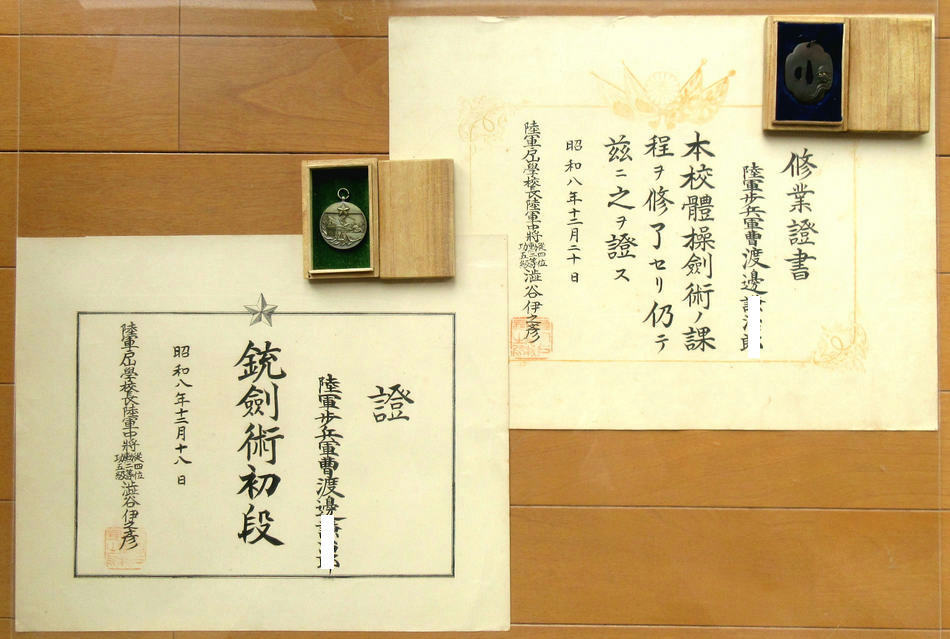 修業證書
陸軍歩兵軍曹渡邊
本校體操劍術ノ課
程ヲ修了セリ仍テ
茲ニ之ヲ證ス
昭和八年十二月二十日
陸軍戸山學校長陸軍中將從四位勳二等功五級澁谷伊之彦
證
陸軍歩兵軍曹渡邊
銃劍術初段
昭和八年十二月十八日
陸軍戸山學校長陸軍中將從四位勳二等功五級澁谷伊之彦